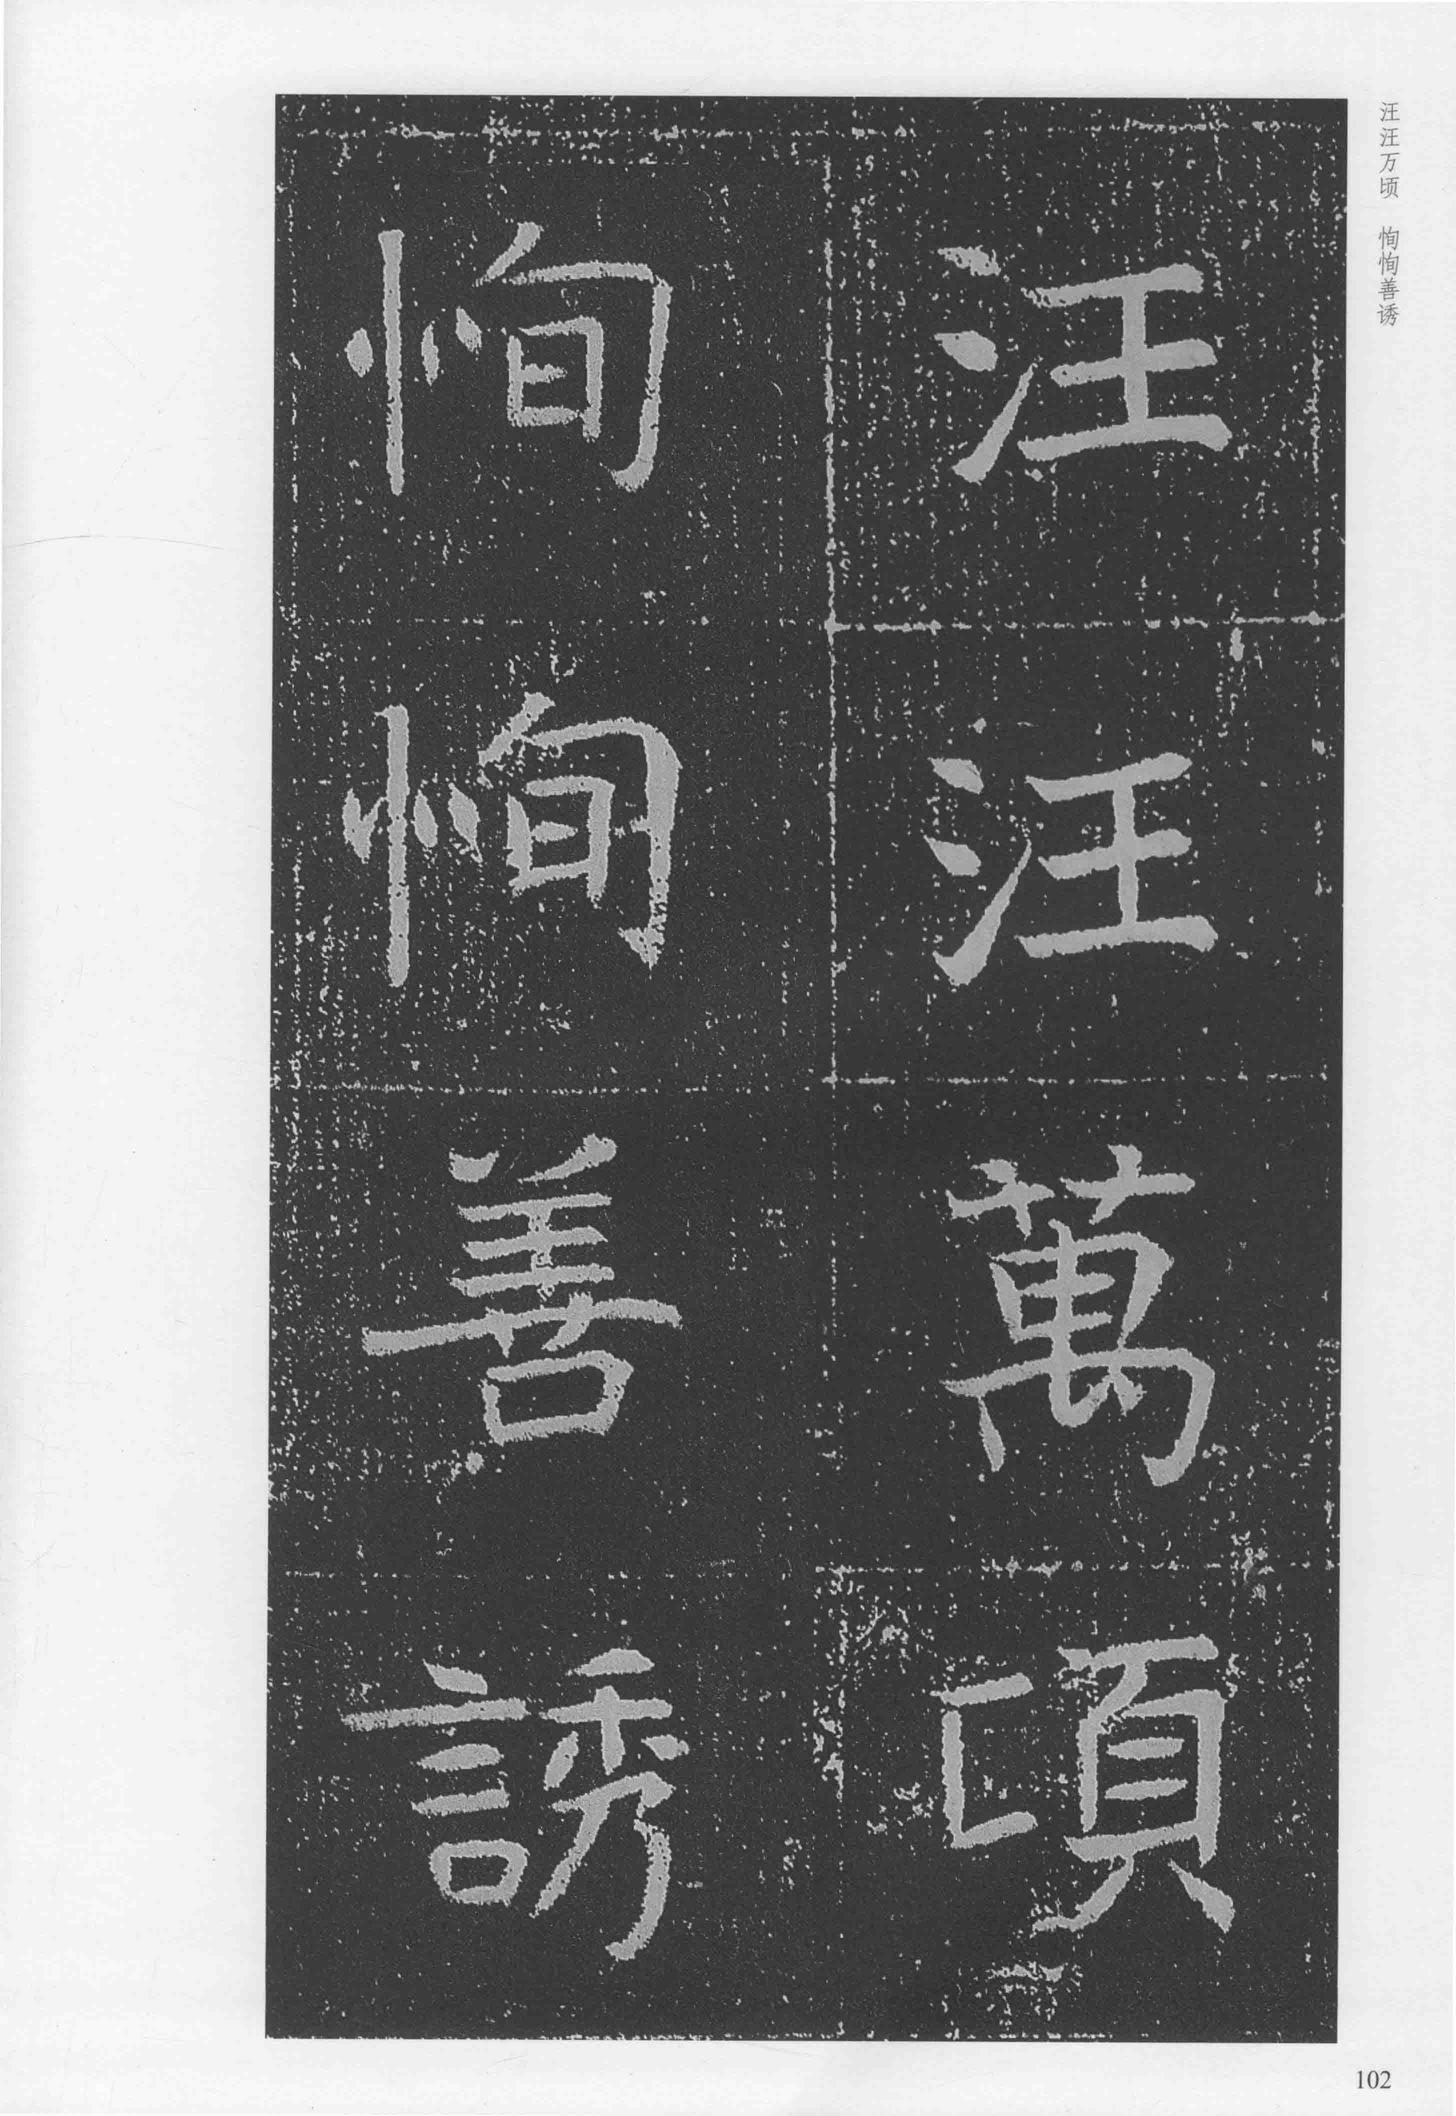 汪汪万顷　恂恂善诱
汪汪萬頃
恂恂善誘
102